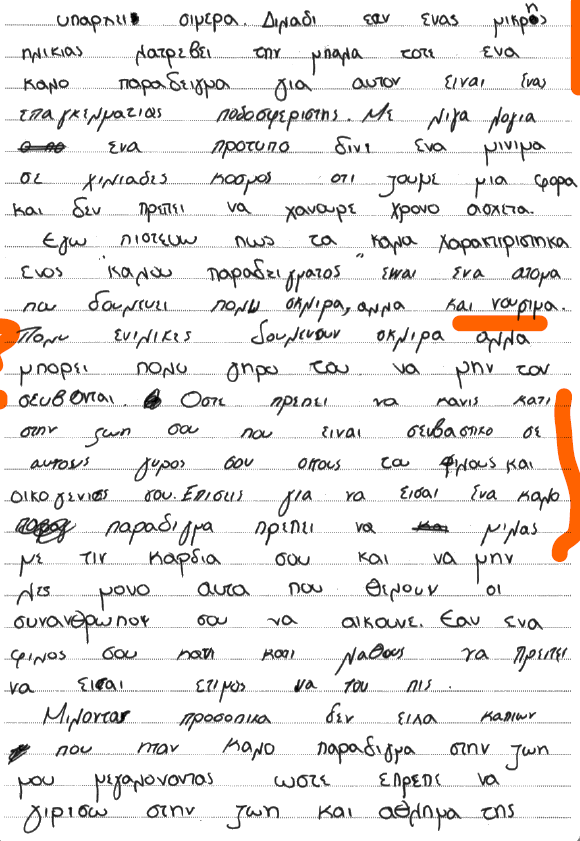 υπαρχει σιμερα. Διλαδι εαν ενας μικρης
ηλικιας λατρεβει την μπαλα τοτε ενα
καλο παραδειγμα για αυτον ειναι ένας
επαγκελματιας ποδοσφεριστης. Με λιγα λογια
ενα προτυπο δινι ενα μινιμα
σε χιλιαδες κοσμος οτι ζουμε μια φορα
και δεν πρεπει να χανουμε χρονο ασχετα.
Εγω πιστευω πως τα "καλα χαρακτιριστηκα
ενος "καλου παραδειγματος" ειναι ενα ατομα
που δουλευει πολυ σκλιρα, αλλα και νουριμα.
Πολυ ενιλικες δουλευουν σκλιρα αλλα
μπορει πολυ γηρω του να μην τον
σευβονται. Οστε πρεπει να κανις κατι
στην ζωη σου που ειναι σευβαστικο σε
αυτους γυρος σου οπους του φιλους και
οικογενιες σου. Επισεις για να εισαι ένα καλο
παραδιγμα πρεπει να μιλας
με τιν καρδια σου και να μην
λες μονο αυτα που θελουν οι
συνανθρωποι σου να αικουνε. Εαν ενα
φιλος σου κανι κατι λαθους τα πρεπει
να εισαι ετιμος να του πις.
Μιλοντας προσοπικα δεν ειχα καπιων
που ηταν καλο παραδιγμα στην ζωη
μου μεγαλονοντας ωστε επρεπε να
γιρισω στην ζωη και αθλημα της